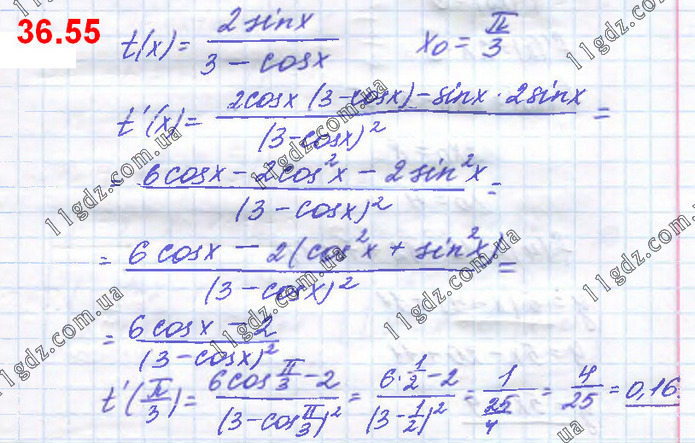 36.55
t(x) = 2sinx / (3 - cosx)    x₀ = π/3
t'(x) = (2cosx (3-cosx) - sinx · 2sinx) / (3-cosx)² =
= (6cosx - 2cos²x - 2sin²x) / (3-cosx)² =
= (6cosx - 2(cos²x + sin²x)) / (3-cosx)² =
= (6cosx - 2) / (3-cosx)²
t'(π/3) = (6cos π/3 - 2) / (3-cos π/3)² = (6·1/2 - 2) / (3-1/2)² = 1 / (25/4) = 4/25 = 0,16.
11gdz.com.ua
11gdz.com.ua
11gdz.com.ua
11gdz.com.ua
11gdz.com.ua
11gdz.com.ua
11gdz.com.ua
ua